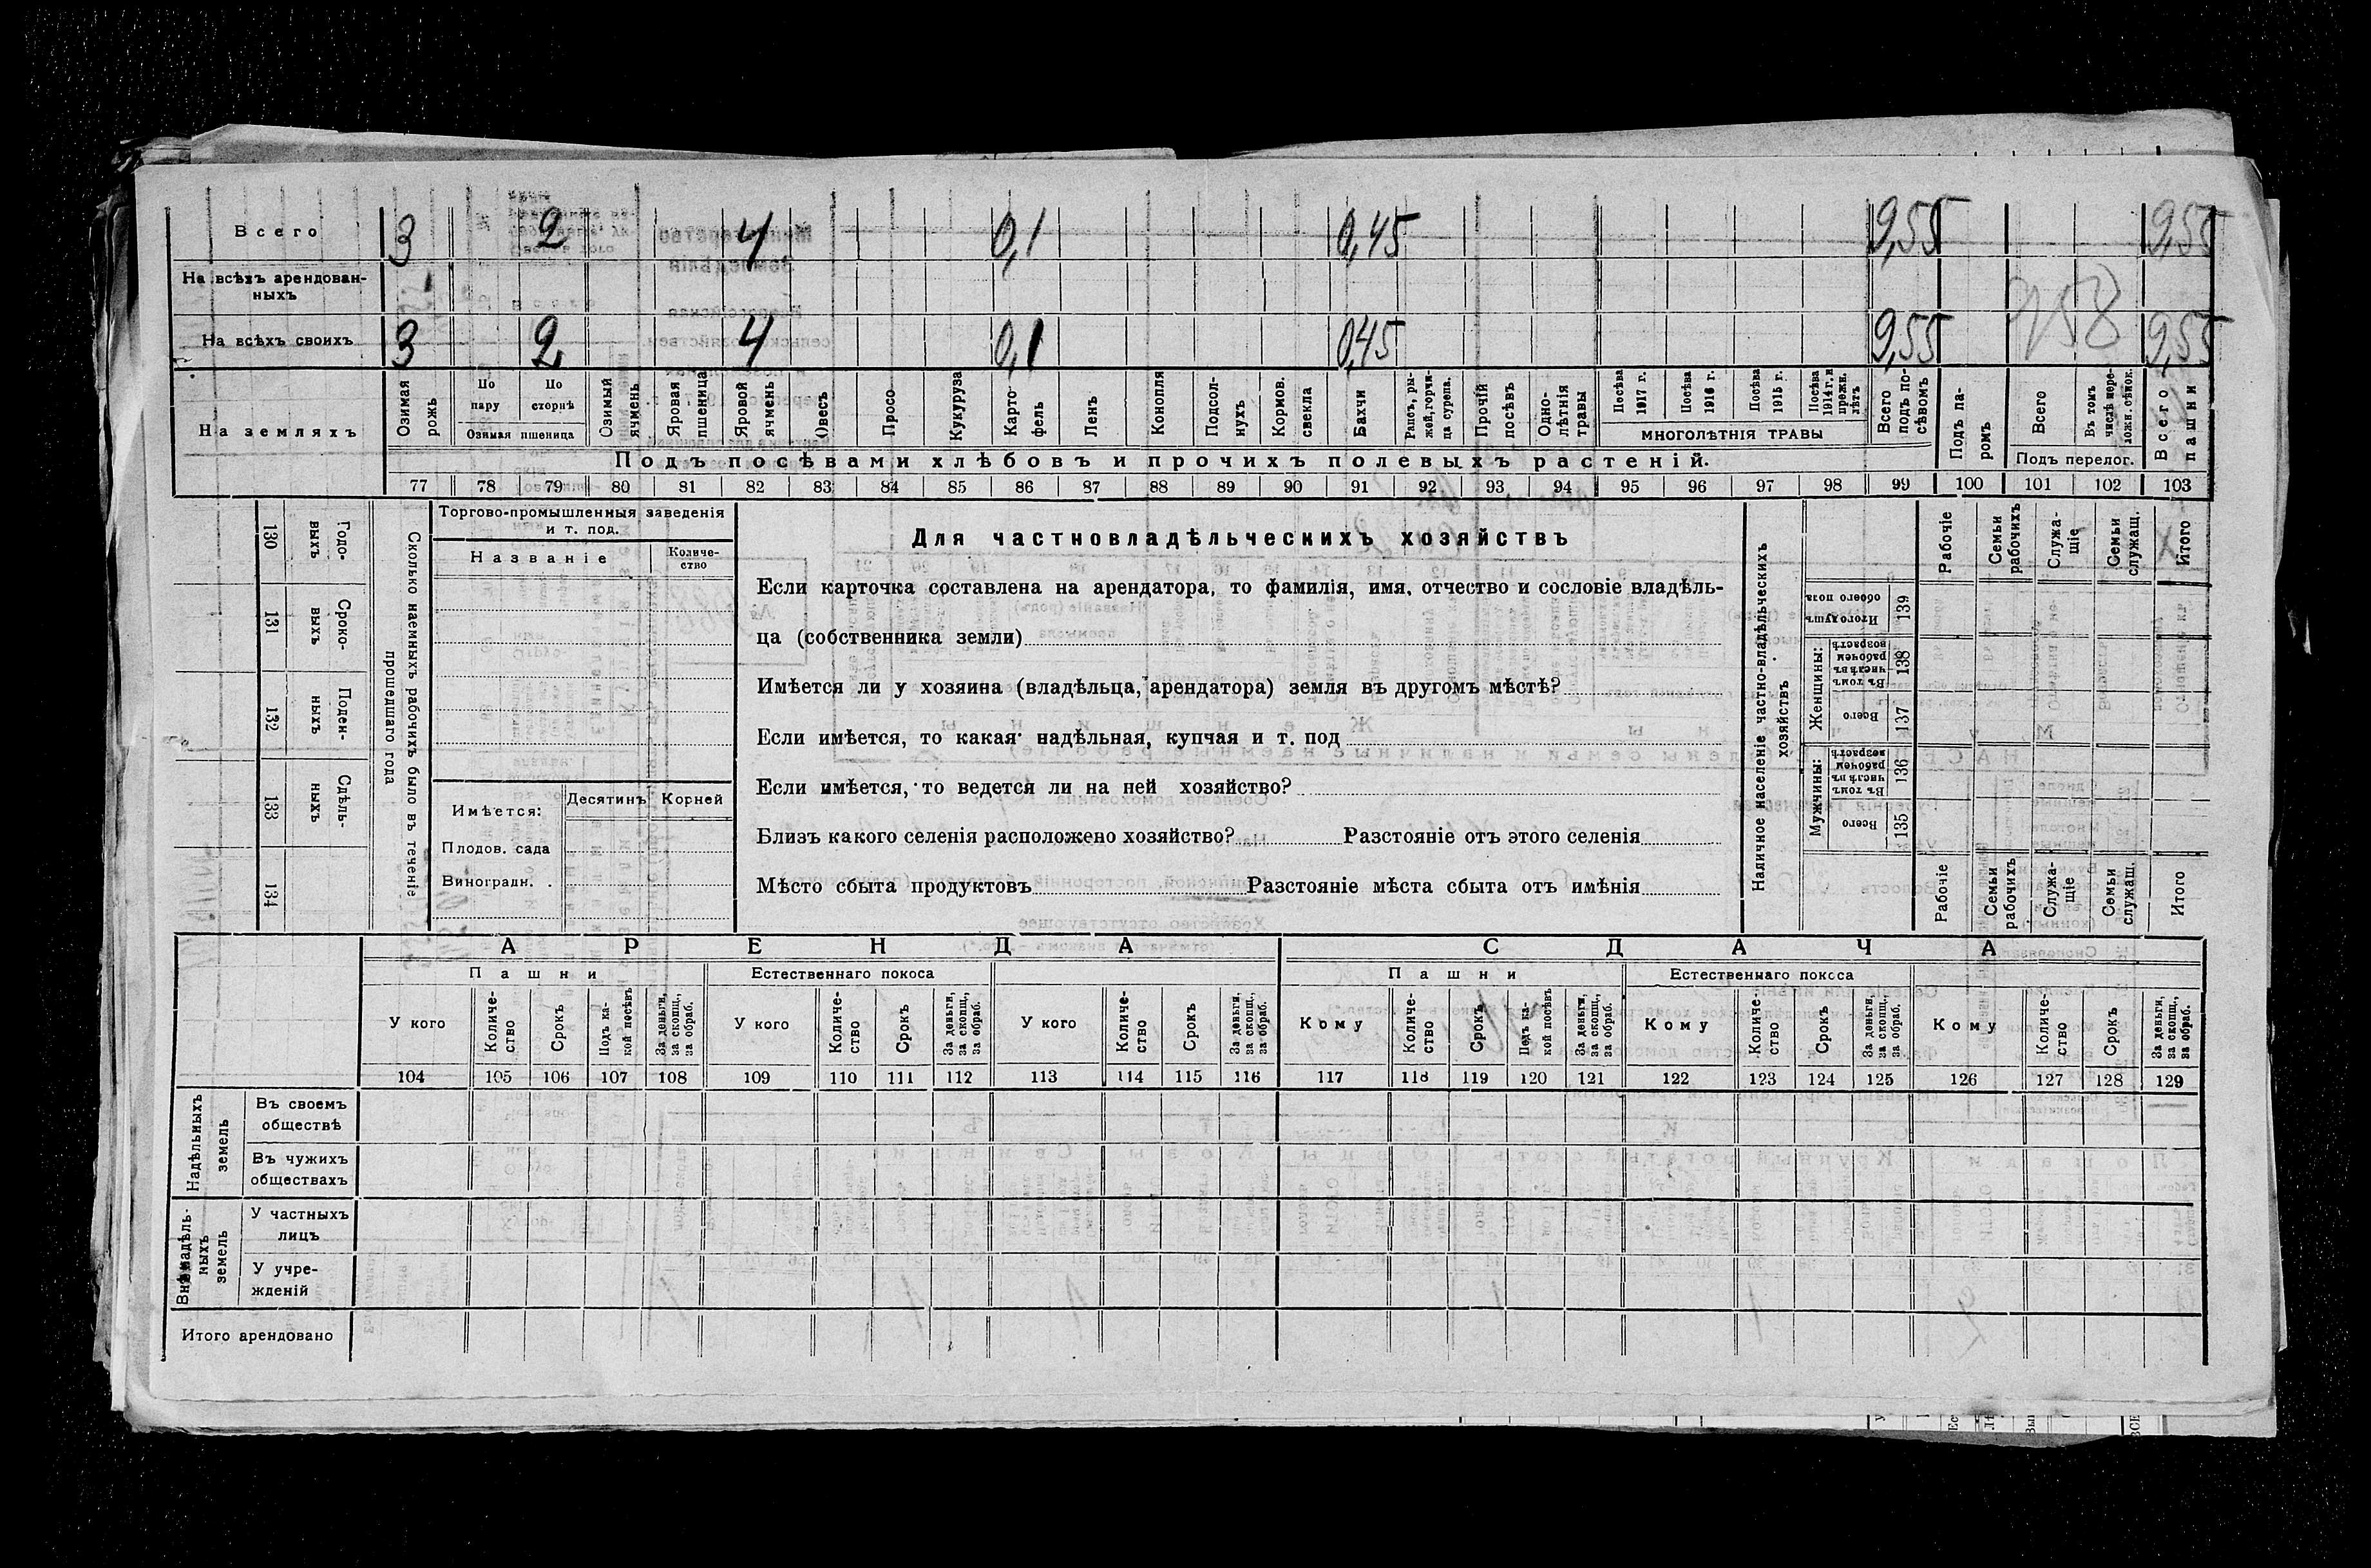 Всего 3 2 4 0,1 0,45 9,55 9,55
На всѣхъ арендован-
ныхъ
958
На всѣхъ своихъ 3 2 4 0,1 0,45 9,55 9,55
На земляхъ
Озимая рожь
По пару
По сторнѣ
Озимая пшеница
Озимый ячмень
Яровая пшеница
Яровой ячмень
Овесъ
Просо
Кукуруза
Карто-
фель
Ленъ
Конопля
Подсол-
нухъ
Кормов.
свекла
Бахчи
Рапсъ, ры-
жей, горчи-
ца сурепа.
Прочій
посѣвъ
Одно-
лѣтнія
травы
Посѣва
1917 г.
Посѣва
1916 г.
Посѣва
1915 г.
Посѣва
1914 г. и
прежн.
лѣтъ
МНОГОЛѢТНІЯ ТРАВЫ
Всего
подъ по-
сѣвомъ
Подъ па-
ромъ
Всего
Въ томъ
числѣ пере-
ложн. сѣнок.
Подъ перелог.
Всего
пашни
Подъ посѣвами хлѣбовъ и прочихъ полевыхъ растеній.
77 78 79 80 81 82 83 84 85 86 87 88 89 90 91 92 93 94 95 96 97 98 99 100 101 102 103
130 Годо-
выхъ
131 Сроко-
выхъ
132 Поден-
ныхъ
133 Сдѣль-
ныхъ
134
Сколько наемныхъ рабочихъ было въ теченіе
прошедшаго года
Торгово-промышленныя заведенія
и т. под.
Названіе
Количе-
ство
Имѣется:
Десятинъ
Корней
Плодов. сада
Виноградн. .
Для частновладѣльческихъ хозяйствъ
Если карточка составлена на арендатора, то фамилія, имя, отчество и сословіе владѣль-
ца (собственника земли)
Имѣется ли у хозяина (владѣльца, арендатора) земля въ другомъ мѣстѣ?
Если имѣется, то какая надѣльная, купчая и т. под
Если имѣется, то ведется ли на ней хозяйство?
Близъ какого селенія расположено хозяйство? Разстояніе отъ этого селенія
Мѣсто сбыта продуктовъ Разстояніе мѣста сбыта отъ имѣнія
Наличное населеніе частно-владѣльческихъ
хозяйствъ
Рабочіе
Семьи
рабочихъ
Служа-
щіе
Семьи
служащ.
Итого
Итого душъ
обоего пола
139
Женщины:
Въ томъ
числѣ въ
рабочемъ
возрастѣ
138
Всего
137
Мужчины:
Въ томъ
числѣ въ
рабочемъ
возрастѣ
136
Всего
135
Рабочіе
Семьи
рабочихъ
Служа-
щіе
Семьи
служащ.
Итого
АРЕНДА
СДАЧА
Пашни
Естественнаго покоса
Пашни
Естественнаго покоса
У кого
Количе-
ство
Срокъ
Подъ ка-
кой посѣвъ
За деньги,
за скопщ.,
за обраб.
У кого
Количе-
ство
Срокъ
За деньги,
за скопщ.,
за обраб.
У кого
Количе-
ство
Срокъ
За деньги,
за скопщ.,
за обраб.
Кому
Количе-
ство
Срокъ
Подъ ка-
кой посѣвъ
За деньги,
за скопщ.,
за обраб.
Кому
Количе-
ство
Срокъ
За деньги,
за скопщ.,
за обраб.
Кому
Количе-
ство
Срокъ
За деньги,
за скопщ.,
за обраб.
104 105 106 107 108 109 110 111 112 113 114 115 116 117 118 119 120 121 122 123 124 125 126 127 128 129
Надѣльныхъ
земель
Въ своемъ
обществѣ
Въ чужихъ
обществахъ
Внѣнадѣль-
ныхъ
земель
У частныхъ
лицъ
У учре-
жденій
Итого арендовано